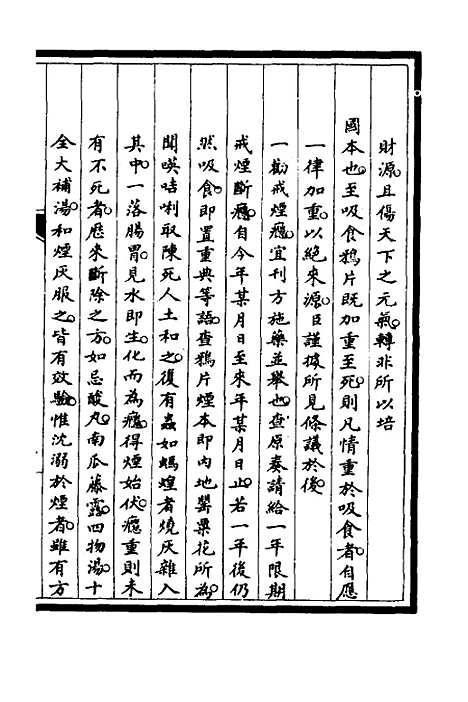 財源且傷天下之元氣轉非所以培
國本也至吸食鴉片既加重至死則凡情重於吸食者自應
一律加重以絕來源臣謹據所見條議於後
一勸戒煙癮宜刊方施藥並舉也查原奏請給一年限期
戒煙斷癮自今年某月日至來年某月日止若一年後仍
然吸食即置重典等語查鴉片煙本即內地罌粟花所為
聞嘆咭唎取陳死人土和之復有蟲如螞蝗者燒灰雜入
其中一落腸胃見水即生化而為癮得煙始伏癮重則未
有不死者歷來斷除之方如忌酸丸南瓜藤露四物湯十
全大補湯和煙灰服之皆有效驗惟沈溺於煙者雖有方